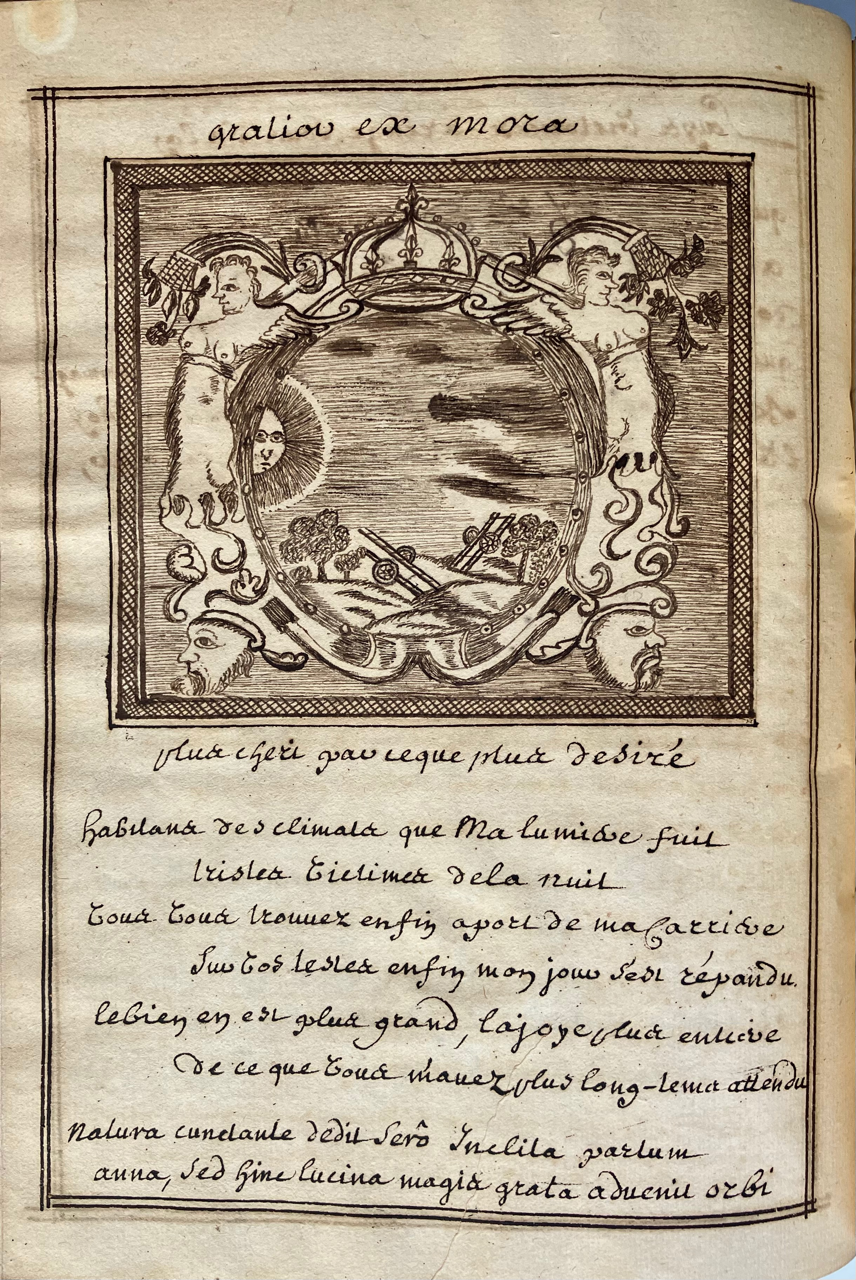 gratior ex mora
plus cheri par ceque plus desiré
habitans des climats que Ma lumiere fuit
tristes victimes dela nuit
vous vous trouvez enfin aport de ma Carriere
Sur vos testes enfin mon jour s'est répandu.
lebien en est plus grand, lajoye plus entiere
De ce que vous m'avez plus long-tems attendu
Natura cunctante dedit serô Inclita partum
anna, sed hinc lucina magis grata advenit orbi